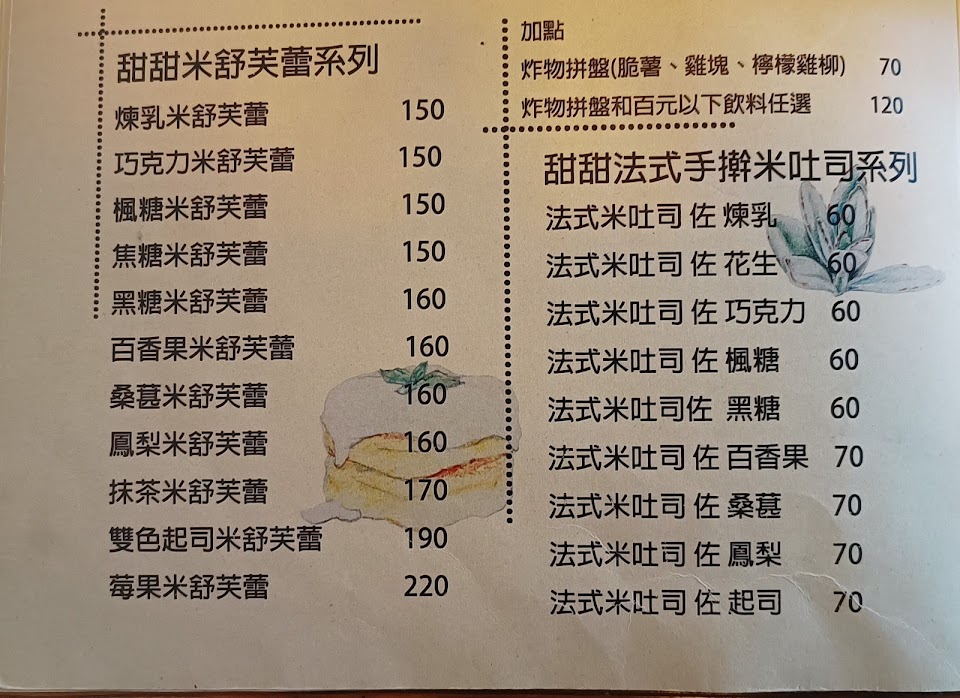 甜甜米舒芙蕾系列
煉乳米舒芙蕾 150
巧克力米舒芙蕾 150
楓糖米舒芙蕾 150
焦糖米舒芙蕾 150
黑糖米舒芙蕾 160
百香果米舒芙蕾 160
桑葚米舒芙蕾 160
鳳梨米舒芙蕾 160
抹茶米舒芙蕾 170
雙色起司米舒芙蕾 190
莓果米舒芙蕾 220
加點
炸物拼盤(脆薯、雞塊、檸檬雞柳) 70
炸物拼盤和百元以下飲料任選 120
甜甜法式手擀米吐司系列
法式米吐司 佐 煉乳 60
法式米吐司 佐 花生 60
法式米吐司 佐 巧克力 60
法式米吐司 佐 楓糖 60
法式米吐司佐 黑糖 60
法式米吐司 佐 百香果 70
法式米吐司 佐 桑葚 70
法式米吐司 佐 鳳梨 70
法式米吐司 佐 起司 70